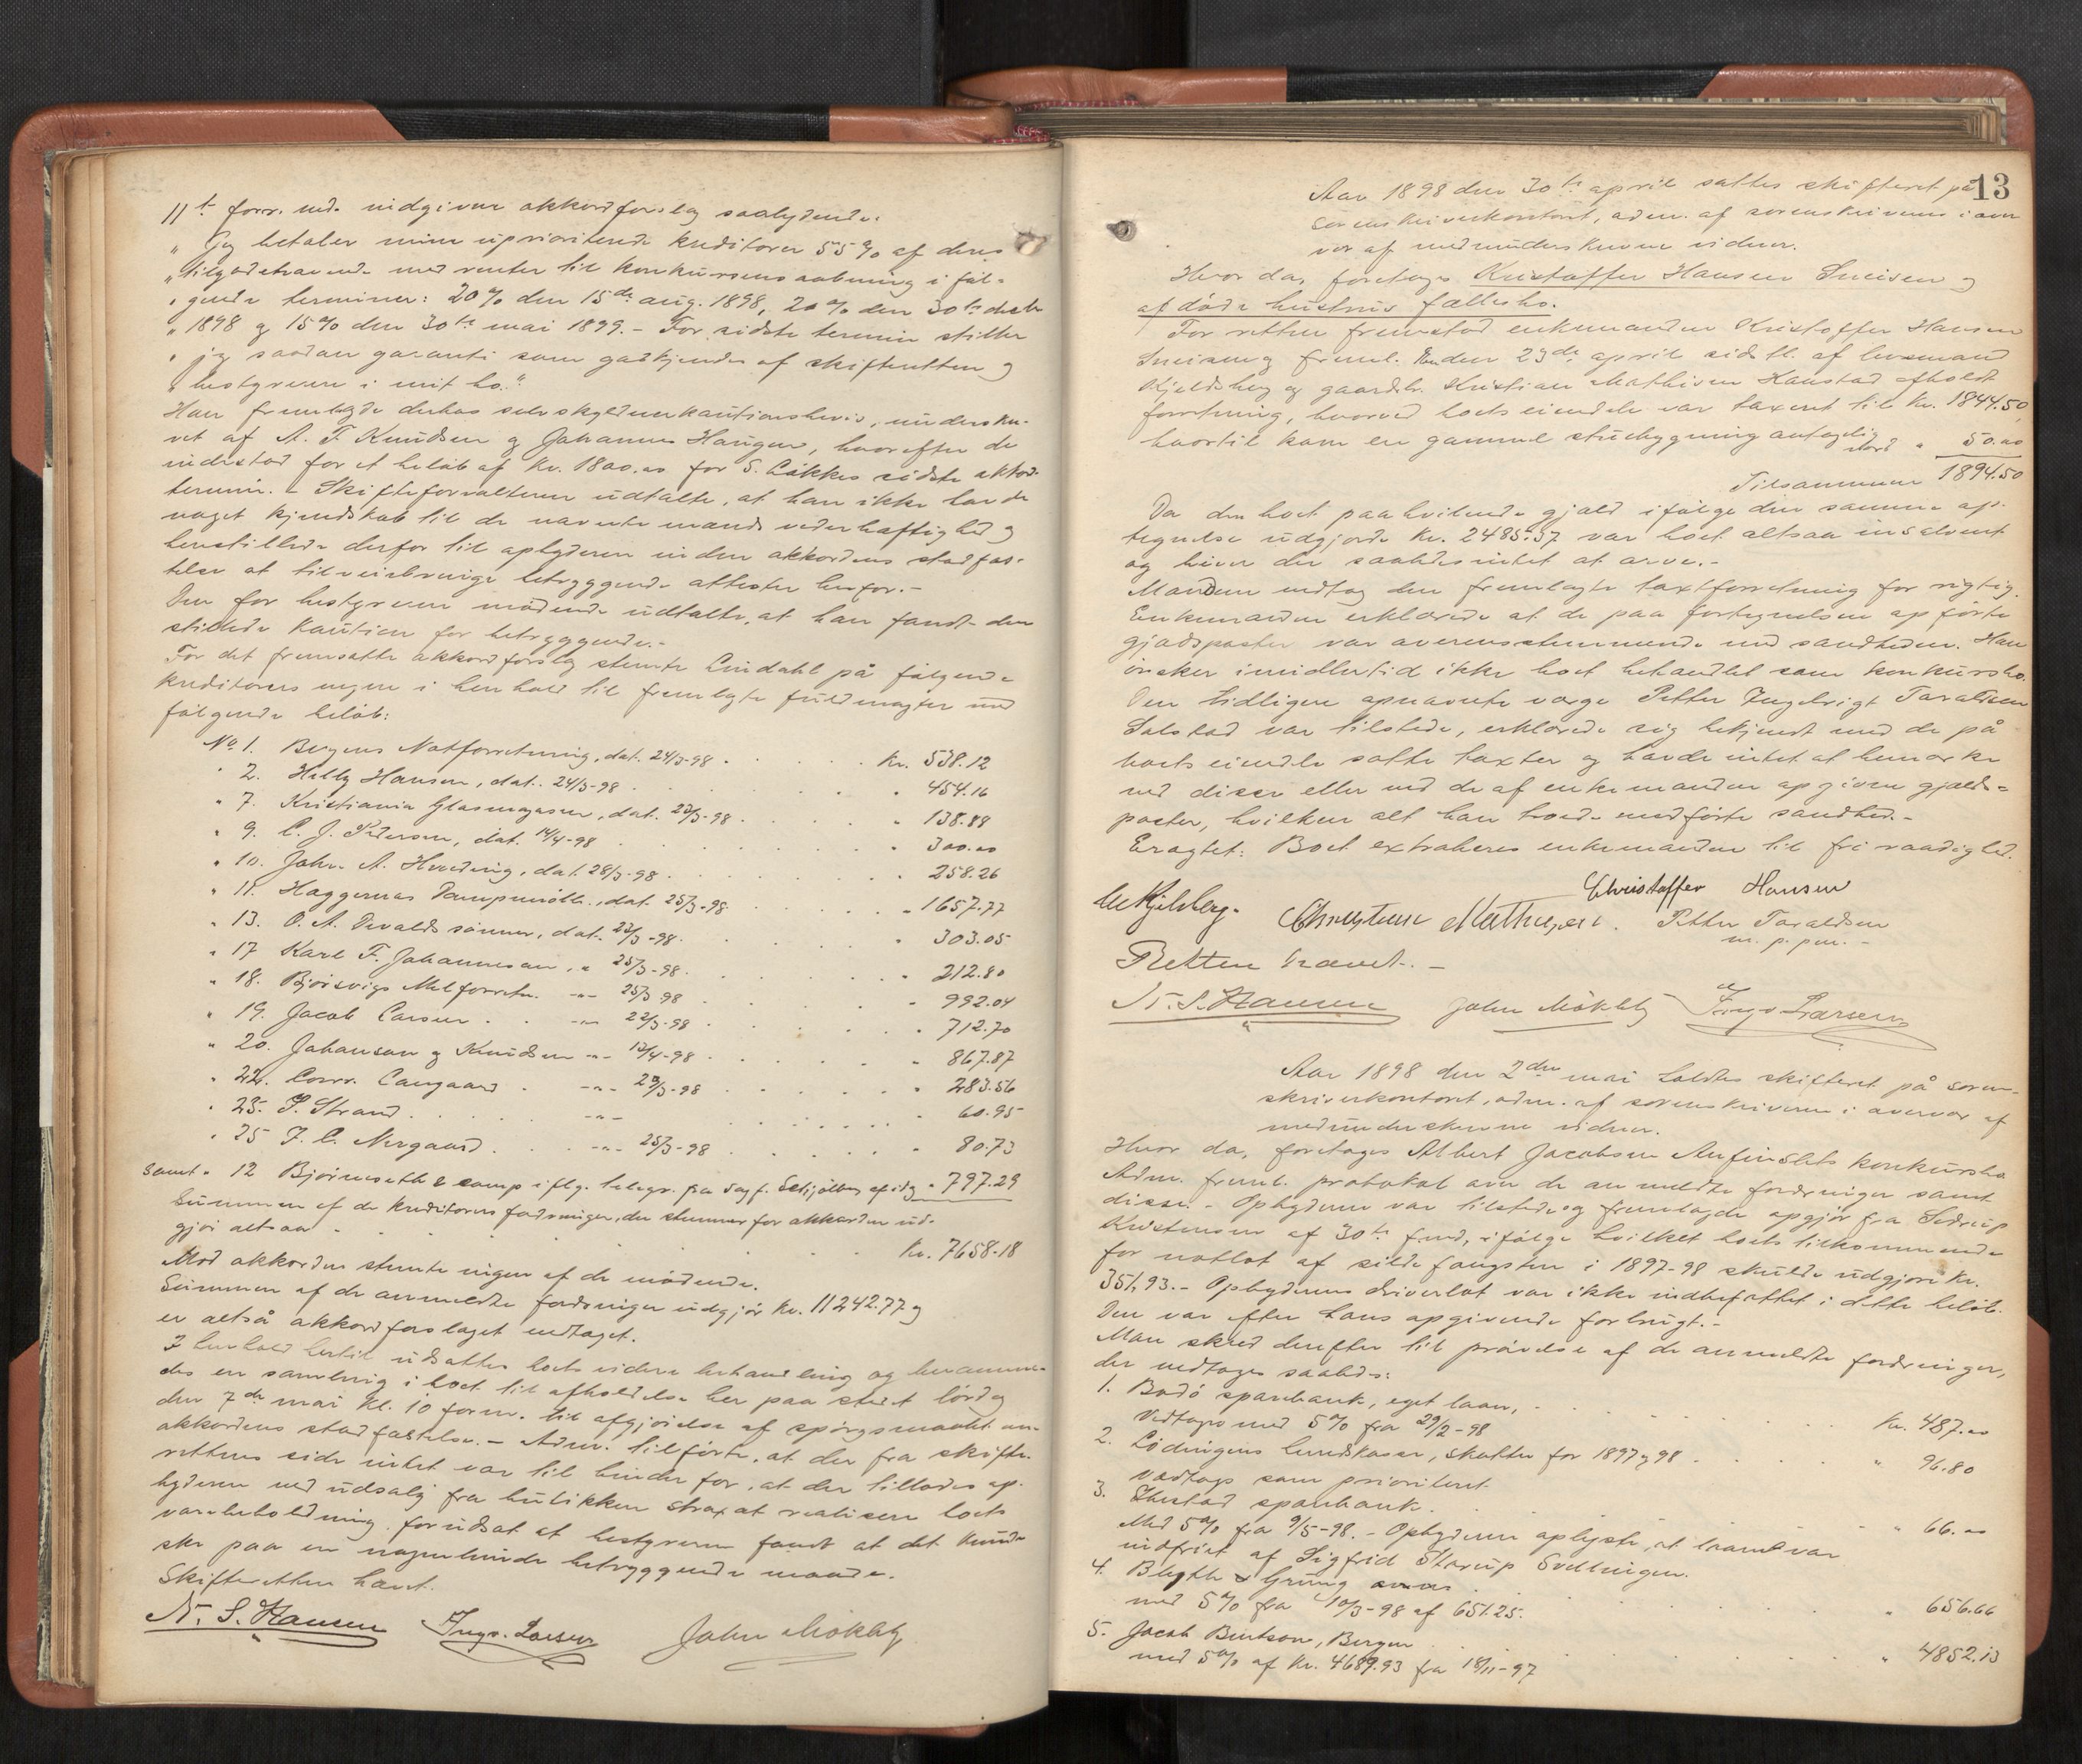 11t forr. nd. nidgivne akkordforslag saalydende:
"Jeg betaler mine uprioriterede kreditorer 55% af deres
"tilgodehavende med renter til konkursens aabning i føl-
"gende terminer: 20% den 15de aug. 1898, 20% den 30te decbr
"1898 og 15% den 30te mai 1899. - For sidste termin stiller
"jeg saadan garanti som godkjendes af skifteretten og
"bestyreren i mit bo."
Han fremlagde derhos selvskyldnerkautionsbevis, underskre-
vet af A. F. Knudsen og Johannes Haugen, hvorefter de
indestod for et beløb af Kr. 1800.00 for S. Løkkes sidste akkord-
termin. - Skifteforvalteren udtalte, at han ikke havde
noget kjendskab til de nævnte mænds vederhæftighed og
henstillede derfor til opbyderen inden akkordens stadfæs-
telse at tilveiebringe betryggende attester herfor. -
Den for bestyreren mødende udtalte, at han fandt den
stillede kaution for betryggende. -
For det fremsatte akkordforslag stemte Lindahl på følgende
kreditorers vegne i henhold til fremlagte fuldmagter med
følgende beløb:
No 1. Bergens Notforretning, dat. 24/3-98 . Kr. 538.12
" 2. Helly Hansen, dat. 24/3-98 . " 454.16
" 7. Kristiania Glasmagasin, dat. 23/3-98 . " 138.89
" 9. C. J. Petersen, dat. 14/4-98 " 300.00
" 10. Johs. A. Herding, dat. 28/3-98 . " 258.26
" 11. Haggernæs Dampmølle, dat. 25/3-98 " 1657.77
" 13. O. A. Devolds sønner, dat. 23/3-98. " 303.05
" 17 Karl F. Johannesen, " 25/3-98. " 212.80
" 18. Bjørsvigs Melforretn. -"- 25/3 98 " 992.04
" 19. Jacob Larsen . . -"- 22/3-98 . " 712.70
" 20. Johanson og Knudsen -"- 12/4-98 . " 867.87
" 22. Conr. Langaard . -"- 28/3-98 . " 283.56
" 23. P. Strand . . -"- " 60.95
" 25 J. C. Nergaard . . -"- 25/3-98 " 80.73
samt " 12 Bjørnseth & comp iflg. telegr. fra sagf. Schjølberg af idg " 797.29
Summen af de kreditorers fordringer, der stemmer for akkorden ud-
gjør altsaa . Kr. 7658.18
Mod akkorden stemte ingen af de mødende.
Summen af de anmeldte fordringer udgjør Kr. 11242.77 og
er altså akkordforslaget vedtaget.
I henhold hertil udsattes boets videre behandling og beramme-
des en samling i boet til afholdelse her paa stedet lørdag
den 7de mai Kl. 10 form. til afgjørelse af spørgsmaalet om
akkordens stadfæstelse. - Adm. tilførte, at der fra skifte-
rettens side intet var til hinder for, at der tillodes op-
byderen ved udsalg fra butikken strax at realisere boets
varebeholdning, forudsat at bestyreren fandt at det kunde
ske paa en nogenlunde betryggende maade.
Skifteretten hævet.
N. S. Hansen Ingv. Larsen John Møkleby
13
Aar 1898 den 30te april sattes skifteret på
sorenskriverkontoret, adm. af sorenskriveren i over
vær af medunderskrevne vidner.
Hvor da, foretoges Kristoffer Hansen Sneisen og
afdøde hustrus fællesbo.
For retten fremstod enkemanden Kristoffer Hansen
Sneisen og freml. den 23de april sidstl. af lensmand
Kjeldsberg og gaardbr. Kristian Mathisen Hanstad afholdt
forretning, hvorved boets eiendele var taxeret til Kr. 1844.50
hvortil kom en gammel stuebygning antagelig værd " 50.00
Tilsammen 1894.50
Da den boet paahvilende gjæld ifølge den samme op-
tegnelse udgjorde Kr. 2485.57 var boet altsaa insolvent
og bliver der saaledes intet at arve. -
Manden vedtog den fremlagte taxtforretning for rigtig.
Enkemanden erklærede at de paa fortegnelsen opførte
gjældsposter var overensstemmende med sandheden. Han
ønsker imidlertid ikke boet behandlet som konkursbo.
Den tidligere opnævnte værge Petter Ingebrigt Taraldsen
Solstad var tilstede, erklærede sig bekjendt med de på
boets eiendele satte taxter og havde intet at bemærke
ved disse eller ved de af enkemanden opgivne gjælds-
poster, hvilken alt han troede medførte sandhed. -
Eragtet: Boet extraheres enkemanden til fri raadighed.
Christoffer Hansen
Kjelsberg. Christian Mathisen. Petter Taraldsen
m. p. pen. -
Retten hævet. -
N. S. Hansen John Møkleby Ingv Larsen
Aar 1898 den 2den mai holdtes skifteret på soren-
skriverkontoret, adm. af sorenskriveren i overvær af
medunderskrevne vidner.
Hvor da, foretoges Albert Jacobsen Aufinslets konkursbo
Adm. freml. protokol over de anmeldte fordringer samt
disse. - Opbyderen var tilstede og fremlagde opgjør fra Sedrup
Kristensen af 30te f.md, ifølge hvilket boets tilkommende
for notlot af sildefangsten i 1897-98 skulde udgjøre Kr.
351,93. - Opbyderens driverlot var ikke indbefattet i dette beløb.
Den var efter hans opgivende forbrugt. -
Man skred derefter til prøvelse af de anmeldte fordringer,
der vedtoges saaledes:
1. Bodø sparebank, eget laan, . Kr. 487.00
Vedtages med 5% fra 29/2-98
2. Lødingens herredskasse, skatter for 1897 og 98 . " 96.80
Vedtages som prioriteret
3. Ibestad sparebank. " 66.00
Med 5% fra 9/5-98. - Opbyderen oplyste, at laanet var
indfriet af Sigfrid Starup Svellingen.
4. Blyth & Grung . " 656.66
med 5% fra 10/3-98 af 651.25.
5. Jacob Berntsen, Bergen . " 4852.13
med 5% af Kr. 4689.93 fra 18/11-97